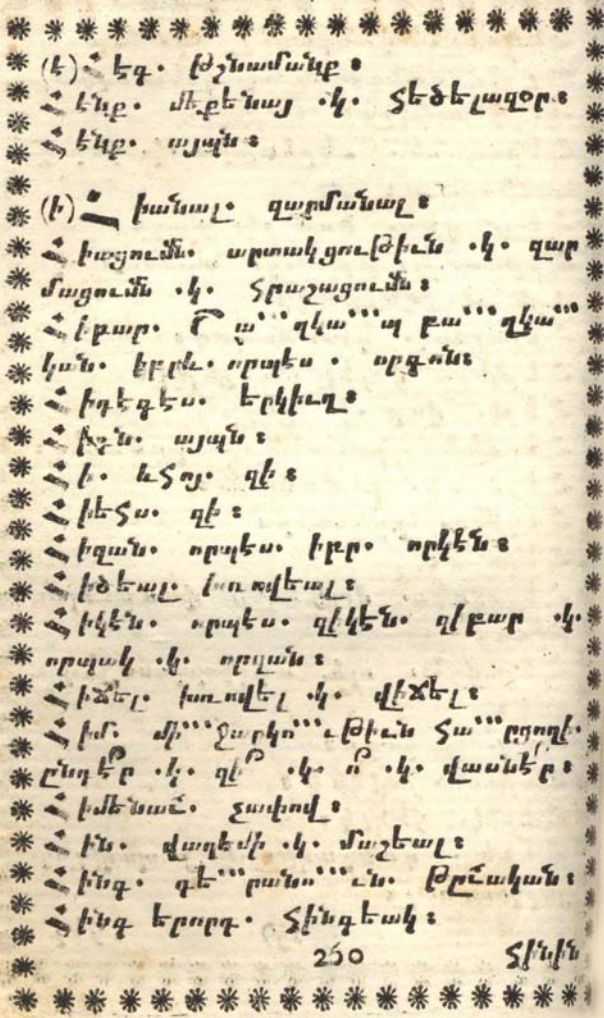 (է) Հէգ. թշնամանք ։
Հէնք. մեքենայ .կ. հեծելազօր ։
Հէնք. այպն ։
(ի) Հիանալ. զարմանալ ։
Հիացումն. արտակցութիւն .կ. զար
մացումն .կ. հրաշացումն ։
Հիքար.
կան. իբրև. որպէս . որգոն ։
Հիդէգէս. երկիւղ ։
այպն ։
Հի. ևհոյ. զի ։
Հիեհս. զի ։
Հիզան. որպէս. իբր. որկէն ։
Հիծեալ. խռովեալ ։
Հիկէն. որպէս. զիկէն. զիբար .կ.
որպակ .կ. որզան ։
Հիճել. խռովել .կ. վիճել ։
Հիմ. մի՛՛՛ջարկո՛՛՛ւթիւն
ընդէ՞ր .կ. զի՞ .կ. ո՞ .կ. վասնէ՞ր ։
չափով ։
Հին. վաղեմի .կ. մաշեալ ։
Հինգ. դե՛՛՛րանո՛՛՛ւն. թըւական ։
Հինգերորդ. հինգեակ ։
260 հինին